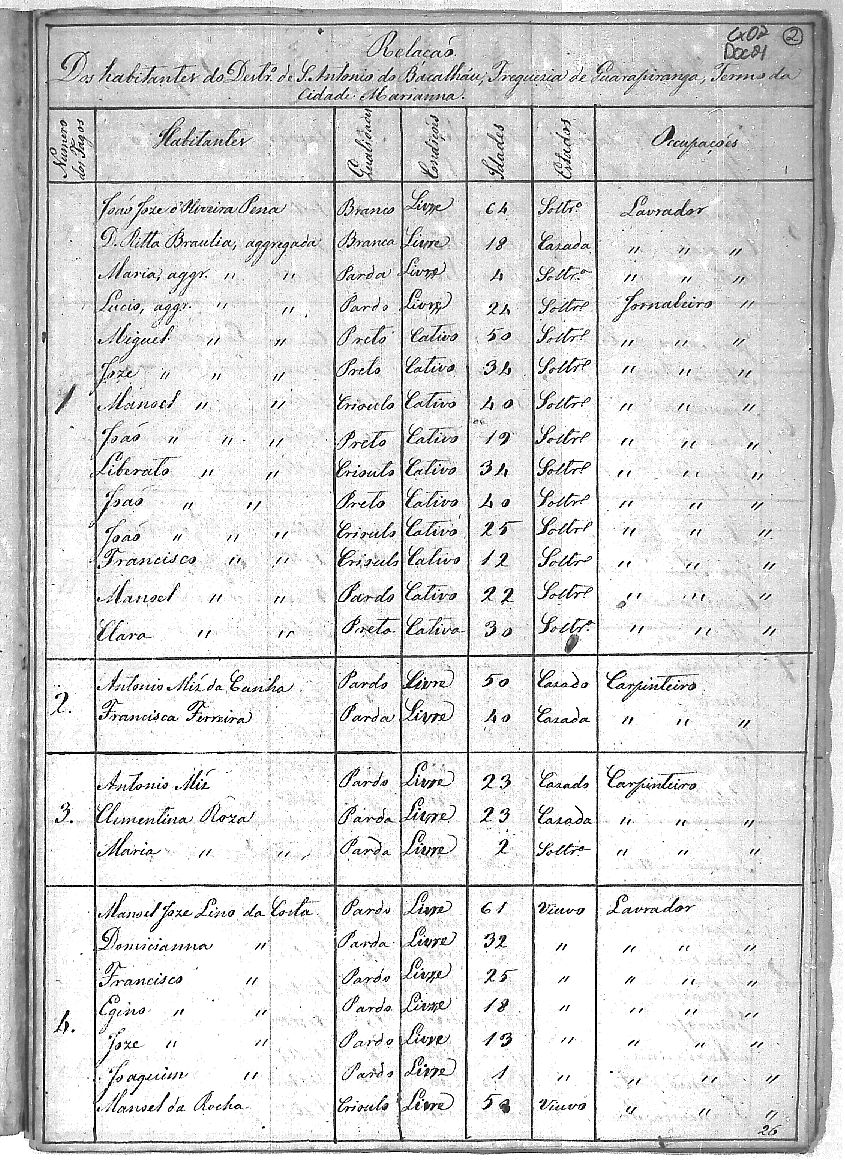 Cx 02
Doc 21
2
Relação
Dos habitantes do Destr.º de S. Antonio do Bacalháu, Freguezia de Guarapiranga, Termo da
Cidade Marianna.
Numero dos Fogos Habitantes Qualidades Condições Idades Estados Occupações
João Joze d'Oliveira Pena Branco Livre 64 Soltr.º Lavrador
D. Ritta Braulia, aggregada Branca Livre 18 Cazada " " "
Maria, aggr. " " Parda Livre 4 Soltr.ª " " "
Lucio, aggr. " " Pardo Livre 24 Soltr.º Jornaleiro "
Miguel " " Preto Cativo 50 Soltr.º " " "
Joze " " " Preto Cativo 34 Soltr.º " " "
1 Manoel " " Crioulo Cativo 40 Soltr.º " " "
João " " " Preto Cativo 19 Soltr.º " " "
Liberato " " Crioulo Cativo 34 Soltr.º " " "
João " " Preto Cativo 40 Soltr.º " " "
João " " " Crioulo Cativo 25 Soltr.º " " "
Francisco " " Crioulo Cativo 12 Soltr.º " " "
Manoel " " Pardo Cativo 22 Soltr.º " " "
Clara " " Preta Cativa 30 Soltr.ª " " "
2. Antonio Miz da Cunha Pardo Livre 50 Cazado Carpinteiro
Francisca Ferreira Parda Livre 40 Cazada " " "
Antonio Miz Pardo Livre 23 Cazado Carpinteiro
3. Clementina Roza Parda Livre 23 Cazada " " "
Maria " " Parda Livre 2 Soltr.ª " " "
Manoel Joze Lino da Costa Pardo Livre 61 Viuvo Lavrador
Domicianna " Parda Livre 32 " " " "
Francisco " Pardo Livre 25 " " " "
Egino " " Pardo Livre 18 " " " "
4. Joze " " Pardo Livre 13 " " " "
Joaquim " Pardo Livre 1 " " " "
Manoel da Rocha Crioulo Livre 50 Viuvo " " "
26